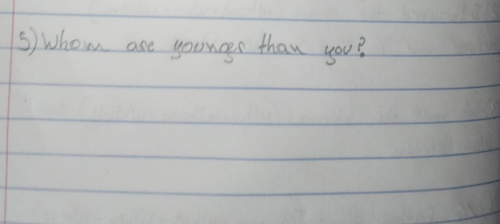 5) Whom are younger than you?